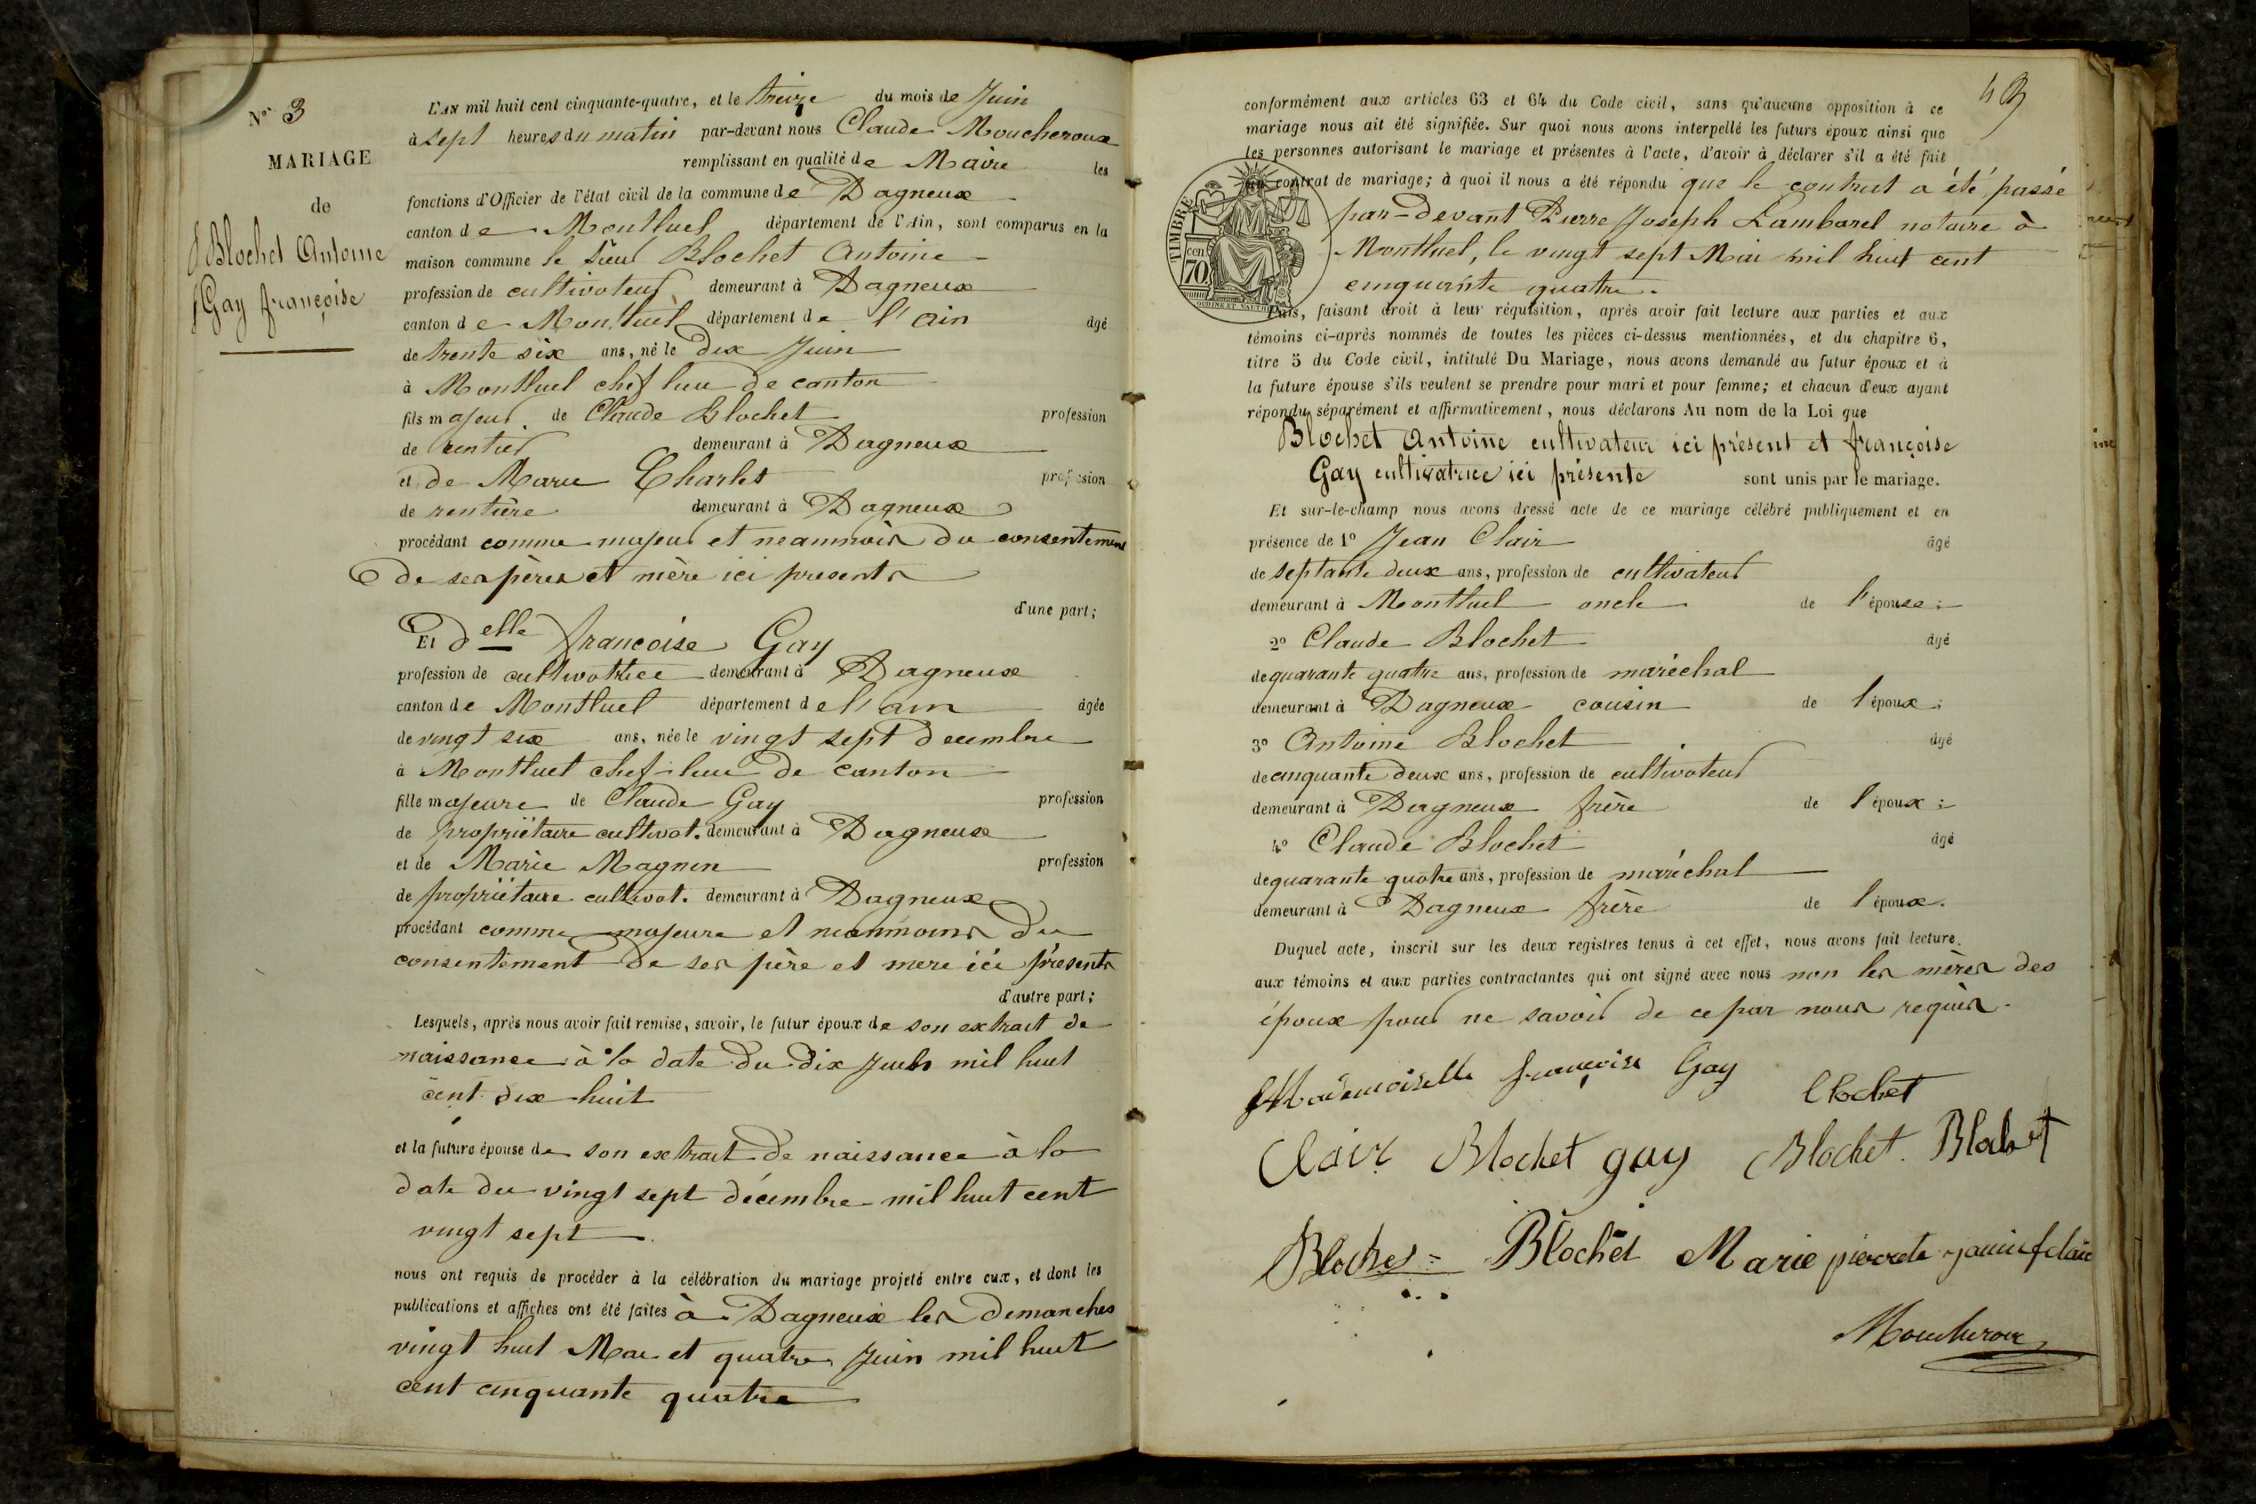 N° 3
MARIAGE
de
Blochet Antoine
Gay françoise
L'AN mil huit cent cinquante-quatre, et le treize du mois de Juin
à sept heures du matin par-devant nous Claude Moucheroux
remplissant en qualité de Maire les
fonctions d'Officier de l'état civil de la commune de Dagneux
canton de Montluel département de l'Ain, sont comparus en la
maison commune le sieur Blochet Antoine
profession de cultivateur demeurant à Dagneux
canton de Montluel département de l'ain âgé
de trente six ans, né le dix Juin
à Montluel chef lieu de canton
fils majeur de Claude Blochet profession
de rentier demeurant à Dagneux
et de Marie Charlet profession
de rentière demeurant à Dagneux
procédant comme majeur et neanmoin du consentement
de ses pères et mère ici presents
d'une part;
Et delle francoise Gay
profession de cultivatrice demeurant à Dagneux
canton de Montluel département de l'ain âgée
de vingt six ans, née le vingt sept decembre
à Montluel chef-lieu de canton
fille majeure de Claude Gay profession
de propriétaire cultivat. demeurant à Dagneux
et de Marie Magnin profession
de propriétaire cultivat. demeurant à Dagneux
procédant comme majeure et neanmoins du
consentement de ses père et mere ici présents
d'autre part;
Lesquels, après nous avoir fait remise, savoir, le futur époux de son extrait de
naissance à la date du dix Juin mil huit
cent dix huit
et la future épouse de son extrait de naissance à la
date du vingt sept décembre mil huit cent
vingt sept
nous ont requis de procéder à la célébration du mariage projeté entre eux, et dont les
publications et affiches ont été faites à Dagneux les demanches
vingt huit Mai et quatre Juin mil huit
cent cinquante quatre
conformément aux articles 63 et 64 du Code civil, sans qu'aucune opposition à ce
mariage nous ait été signifiée. Sur quoi nous avons interpellé les futurs époux ainsi que
les personnes autorisant le mariage et présentes à l'acte, d'avoir à déclarer s'il a été fait
un contrat de mariage; à quoi il nous a été répondu que le contrat a été passé
par-devant Pierre Joseph Lambarel notaire à
Montluel, le vingt sept Mai mil huit cent
cinquante quatre.
TIMBRE
cen
70
Puis, faisant droit à leur réquisition, après avoir fait lecture aux parties et aux
témoins ci-après nommés de toutes les pièces ci-dessus mentionnées, et du chapitre 6,
titre 5 du Code civil, intitulé Du Mariage, nous avons demandé au futur époux et à
la future épouse s'ils veulent se prendre pour mari et pour femme; et chacun d'eux ayant
répondu séparément et affirmativement, nous déclarons Au nom de la Loi que
Blochet Antoine cultivateur ici présent et françoise
Gay cultivatrice ici présente sont unis par le mariage.
Et sur-le-champ nous avons dressé acte de ce mariage célébré publiquement et en
présence de 1° Jean Clair âgé
de septante deux ans, profession de cultivateur
demeurant à Montluel oncle de l'épouse;
2° Claude Blochet âgé
de quarante quatre ans, profession de maréchal
demeurant à Dagneux cousin de l'époux;
3° Antoine Blochet âgé
de cinquante deux ans, profession de cultivateur
demeurant à Dagneux frère de l'époux;
4° Claude Blochet âgé
de quarante quatre ans, profession de maréchal
demeurant à Dagneux frère de l'époux.
Duquel acte, inscrit sur les deux registres tenus à cet effet, nous avons fait lecture
aux témoins et aux parties contractantes qui ont signé avec nous non les mères des
époux pour ne savoir de ce par nous requis.
Mademoiselle françoise Gay Blochet
Clair Blochet gay Blochet Blochet
Blochet Blochet Marie pierrete
Moucheroux